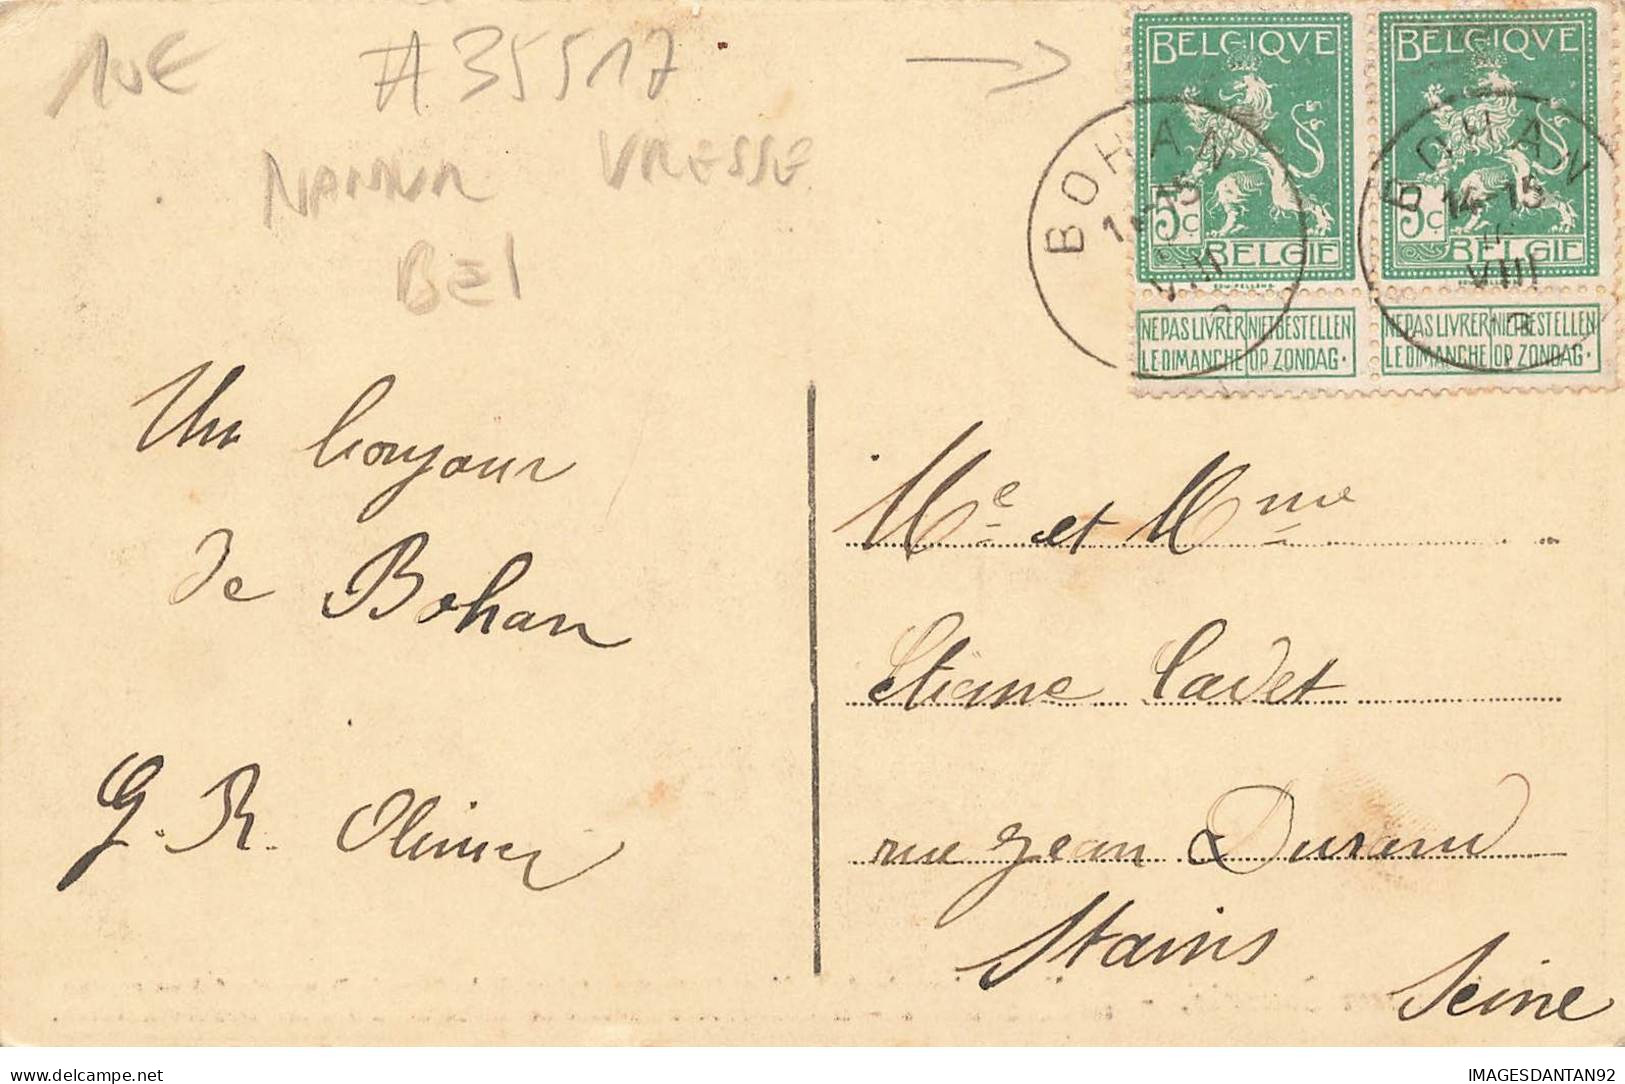 10€ #35517
NAMUR VRESSE
BEL
BELGIQVE
5c
BELGIE
NE PAS LIVRER LE DIMANCHE
NIET BESTELLEN OP ZONDAG.
BELGIQVE
5c
BELGIE
NE PAS LIVRER LE DIMANCHE
NIET BESTELLEN OP ZONDAG.
BOHAN
15
VIII
BOHAN
14-15
VIII
Un bonjour
de Bohan
G. R. Olivier
Me et Mme
Etiane Cadet
rue Jean Durand
Stains
Seine
IMAGESDANTAN92